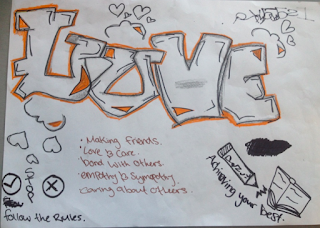 LOVE
: Making friends.
Love & Care.
bond with others
empathy & Sympathy.
caring about others.
STOP
follow the Rules.
Achieving your best.